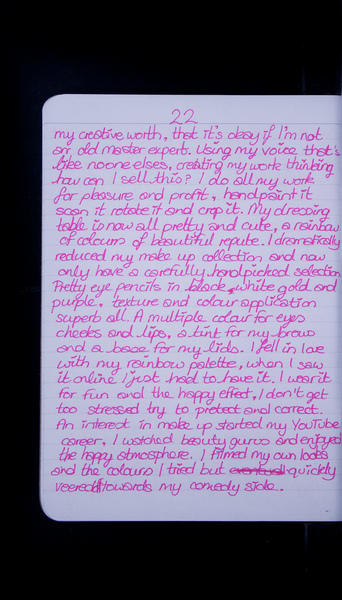 22
my creative worth, that it's okay if I'm not
an old master expert. Using my voice that's
like noone elses, creating my work thinking
how can I sell this? I do all my work
for pleasure and profit, handpaint it
scan it rotate it and crop it. My dressing
table is now all pretty and cute, a rainbow
of colours of beautiful repute. I dramatically
reduced my make up collection and now
only have a carefully handpicked selection
Pretty eye pencils in black, white gold and
purple, texture and colour application
superb all. A multiple colour for eyes
cheeks and lips, a tint for my brows
and a base for my lids. I fell in love
with my rainbow palette, when I saw
it online I just had to have it. I wear it
for fun and the happy effect, I don't get
too stressed try to protect and correct.
An interest in make up started my YouTube
career, I watched beauty gurus and enjoyed
the happy atmosphere. I filmed my own looks
and the colours I tried but eventuall quickly
veered towards my comedy side.